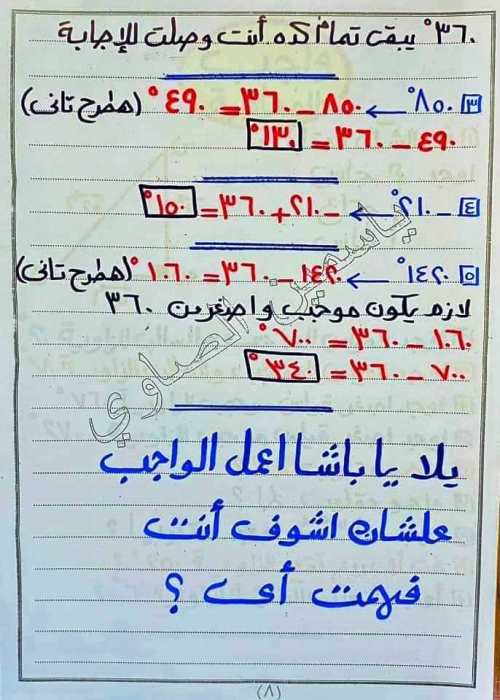 ٣٦٠° يبقى تمام كده أنت وصلت للإجابة
٣ ٨٥٠° ← ٨٥٠ - ٣٦٠ = ٤٩٠° (هطرح تانى)
٤٩٠ - ٣٦٠ = ١٣٠°
٤ -٢١٠° ← -٢١٠ + ٣٦٠ = ١٥٠°
٥ ١٤٢٠° ← ١٤٢٠ - ٣٦٠ = ١٠٦٠° (هطرح تانى)
لازم يكون موجب واصغر من ٣٦٠
١٠٦٠ - ٣٦٠ = ٧٠٠°
٧٠٠ - ٣٦٠ = ٣٤٠°
ياسمين الصاوي
يلا يا باشا اعمل الواجب
علشان اشوف أنت
فهمت أى ؟
(٨)